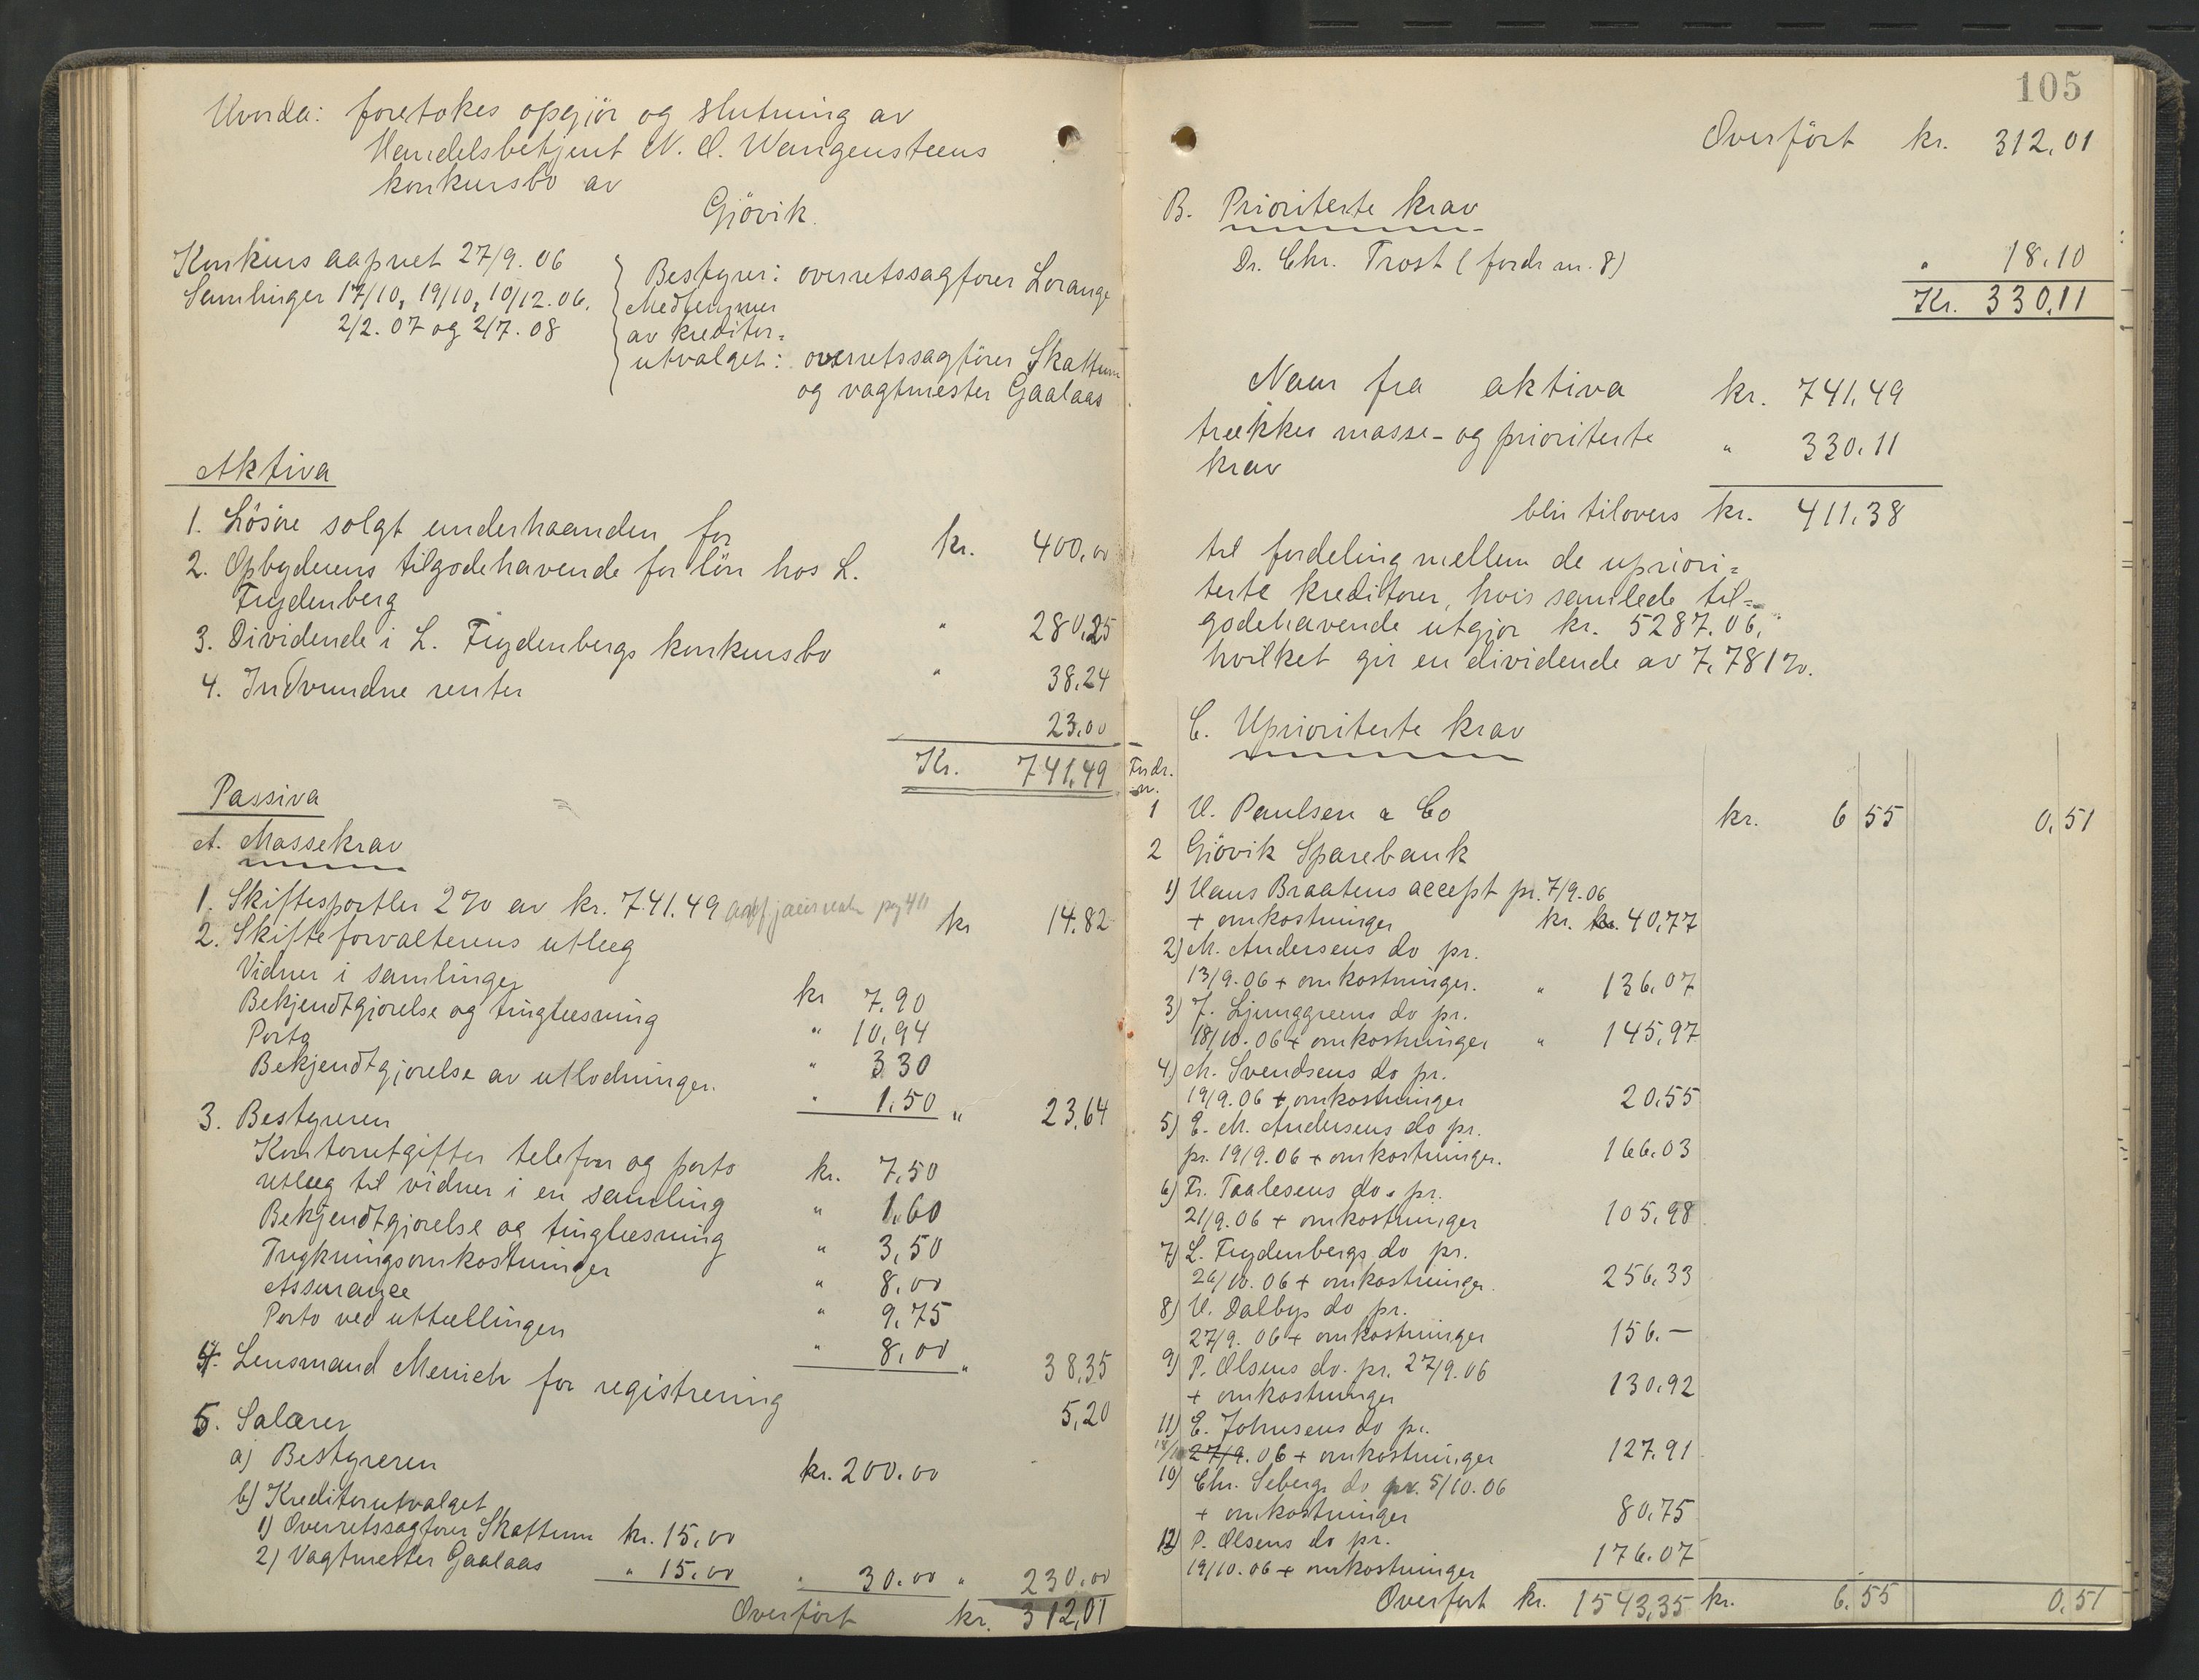 Hvorda: foretokes opgjör og slutning av
Handelsbetjent N. O. Wangensteens
konkursbo av
Gjövik.
Konkurs aapnet 27/9. 06
Samlinger 17/10, 19/10, 10/12. 06.
2/2. 07 og 2/7. 08
Bestyrer: overretssagfører Lorange
Medlemmer
av kreditor=
utvalget: overretssagförer Skattum
og vagtmester Gaalaas
Aktiva
1. Lösöre solgt underhaanden for kr. 400.00
2. Opbyderens tilgodehavende for lön hos L.
Frydenberg " 280,25
3. Dividende i L. Frydenbergs konkursbo " 38.24
4. Indvundne renter 23.00
Kr. 741.49
Passiva
A. Massekrav
1. Skiftesportler 2% av kr. 741.49 kr 14.82
2. Skifteforvalterens utlæg
Vidner i samlinger kr 7.90
Bekjendtgjørelse og tinglæsning " 10,94
Porto " 3 30
Bekjendtgjørelse av utlodningen. " 1.50 " 23,64
3. Bestyreren
Kontorutgifter telefon og porto kr. 7,50
utlæg til vidner i en samling " 1.60
Bekjendtgjørelse og tinglæsning " 3,50
Trykningsomkostninger " 8,00
Assurance " 9,75
Porto ved uttællingen " 8,00 " 38,35
4. Lensmand Menich for registrering 5,20
5. Salærer
a) Bestyreren kr. 200.00
b) Kreditorutvalget
1) Overretssagfører Skattum kr. 15,00
2) Vagtmester Gaalaas " 15.00 " 30.00 " 230.00
Overfört kr. 312,01
105
Overfört kr. 312,01
B. Prioriterte krav
Dr. Chr. Trost (fordr nr. 8) " 18.10
Kr. 330,11
Naar fra aktiva kr. 741,49
trækkes masse- og prioriterte " 330.11
krav
blir tilovers kr. 411.38
til fordeling mellem de upriori=
terte kreditorer, hvis samlede til=
godehavende utgjør kr. 5287.06,
hvilket gir en dividende av 7.781%.
C. Uprioriterte krav
Fordr.
nr.
1 V. Paulsen & Co kr. 6 55 0,51
2 Gjövik Sparebank
1) Hans Braatens accept pr. 7/9.06
+ omkostninger kr. kr. 40,77
2) M. Andersens do pr.
13/9.06 + omkostninger. " 136,07
3) J. Ljunggreens do pr.
18/10.06 + omkostninger " 145,97
4) M. Svendsens do pr.
19/9.06 + omkostninger 20.55
5) E. M. Andersens do pr.
pr. 19/9.06 + omkostninger. 166.03
6) Fr. Taalesens do. pr.
21/9.06 + omkostninger 105,98
7) L. Frydenbergs do pr.
26/10.06 + omkostninger. 256,33
8) V. Dalbys do pr.
27/9. 06 + omkostninger 156.—
9) P. Olsens do. pr. 27/9.06
+ omkostninger 130.92
11) E. Johnsens do pr.
18/10 27/9.06 + omkostninger 127.91
10) Chr. Sebergs do pr. 5/10.06
+ omkostninger 80,75
12) P. Olsens do pr.
19/10.06 + omkostninger 176.07
Overfört kr. 1543,35 kr. 6.55 0,51